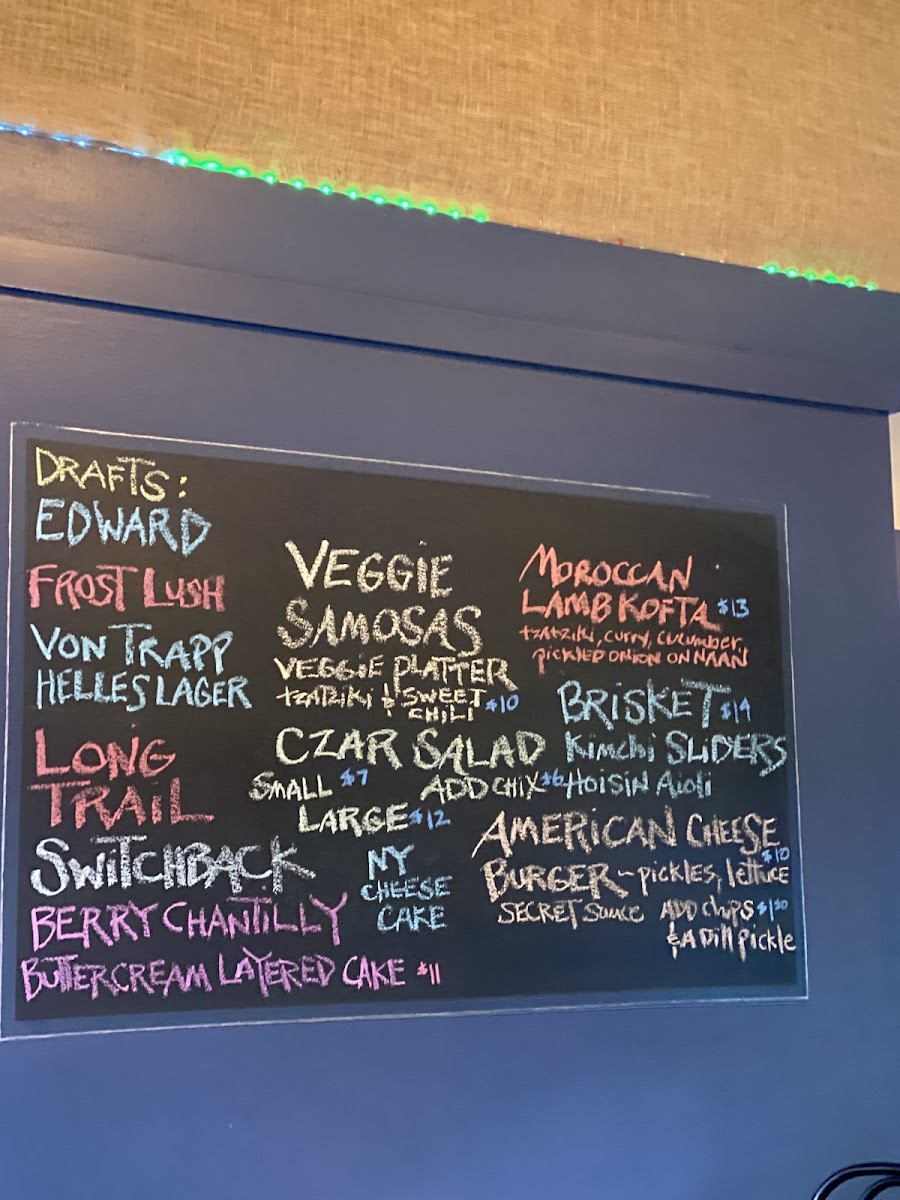 DRAFTS:
EDWARD
FROST LUSH
VON TRAPP
HELLES LAGER
LONG
TRAIL
SWiTCHBACK
BERRY CHANTiLLY
BUTTERCREAM LAYERED CAKE $11
VEGGiE
SAMOSAS
VEGGiE PLATTER
tzATZiki & SWEET
CHiLi $10
CZAR SALAD
SMALL $7 ADD CHIX $6
LARGE $12
NY
CHEESE
CAKE
MOROCCAN
LAMB KOFTA $13
tzatziki, curry, cucumber,
pickled onion on NAAN
BRiSKET $14
Kimchi SLIDERS
HOiSiN Aioli
AMERiCAN CHEESE
BURGER ~ pickles, lettuce $10
SECRET Sauce ADD chips $1.50
& A Dill pickle